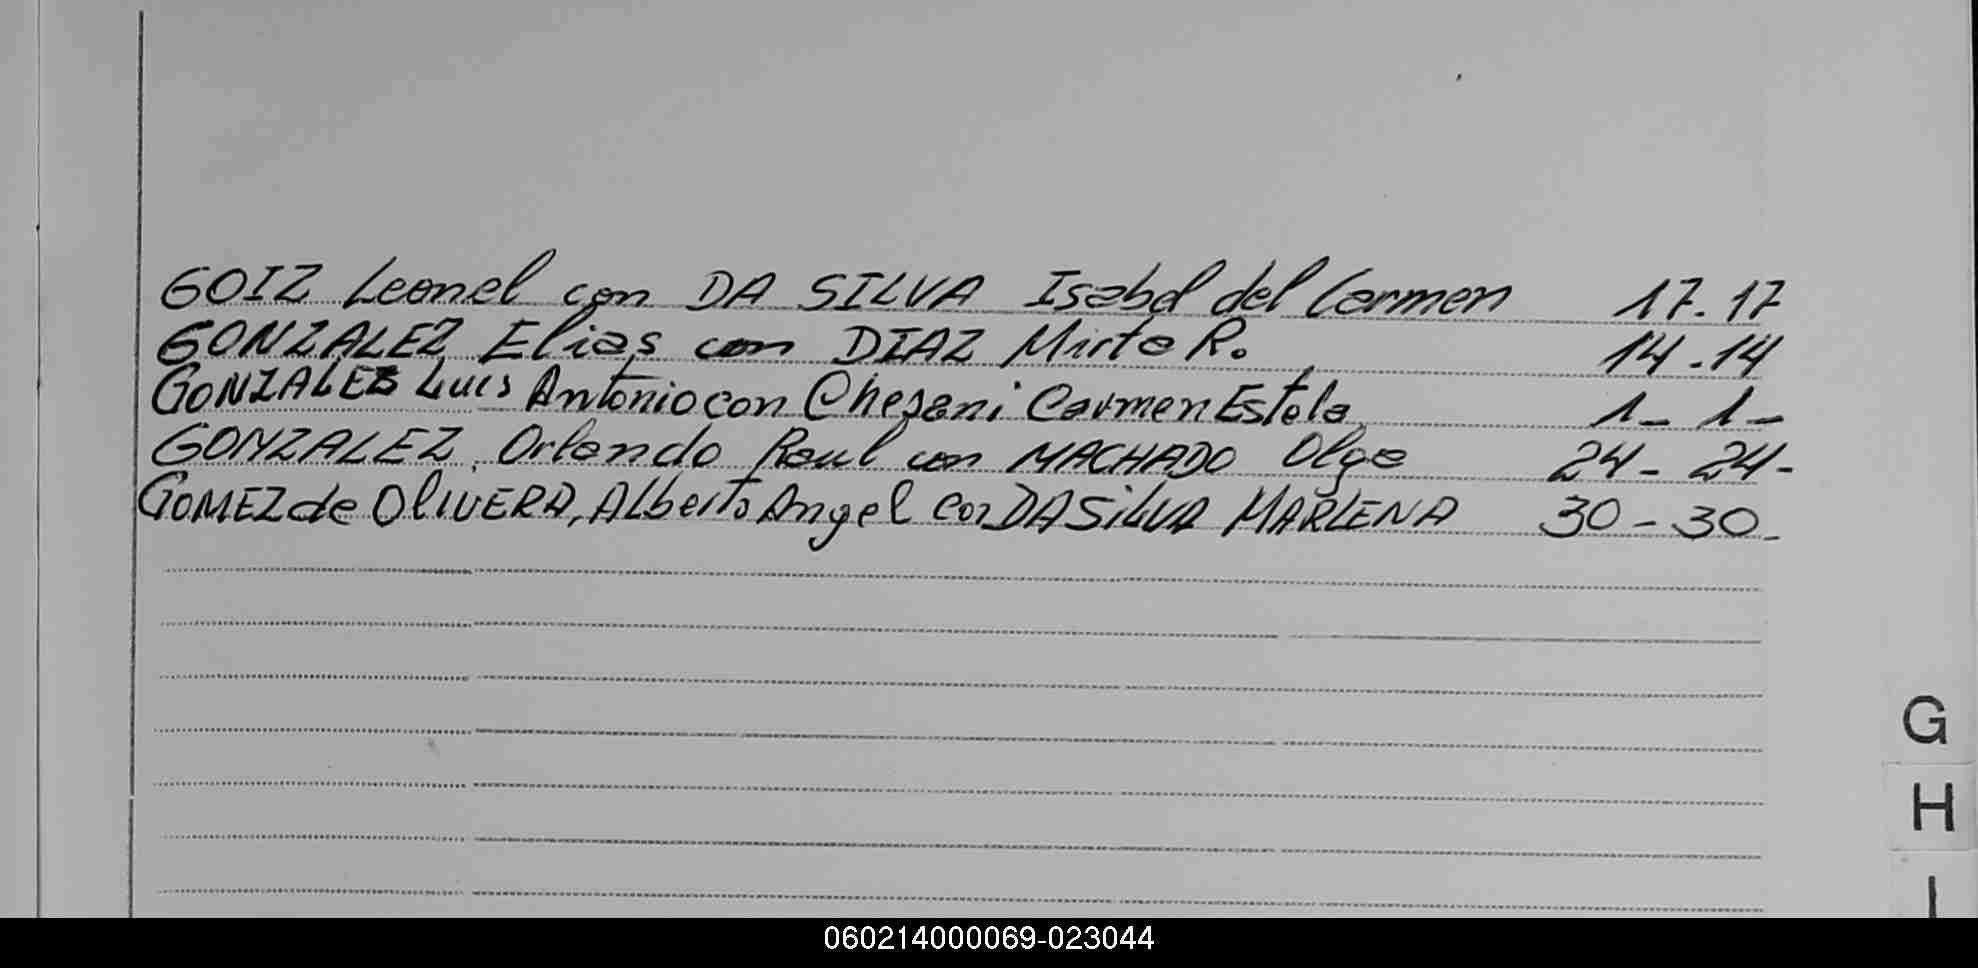 GOIZ Leonel con DA SILVA Isabel del Carmen 17.17
GONZALEZ Elias con DIAZ Mirta R. 14.14
GONZALEZ Luis Antonio con Chesani Carmen Estela 1_ 1_
GONZALEZ, Orlando Raul con MACHADO Olga 24- 24-
GOMEZ de OLIVERA, Alberto Angel con DA SILVA MARLENA 30-30-
G
H
I
060214000069-023044